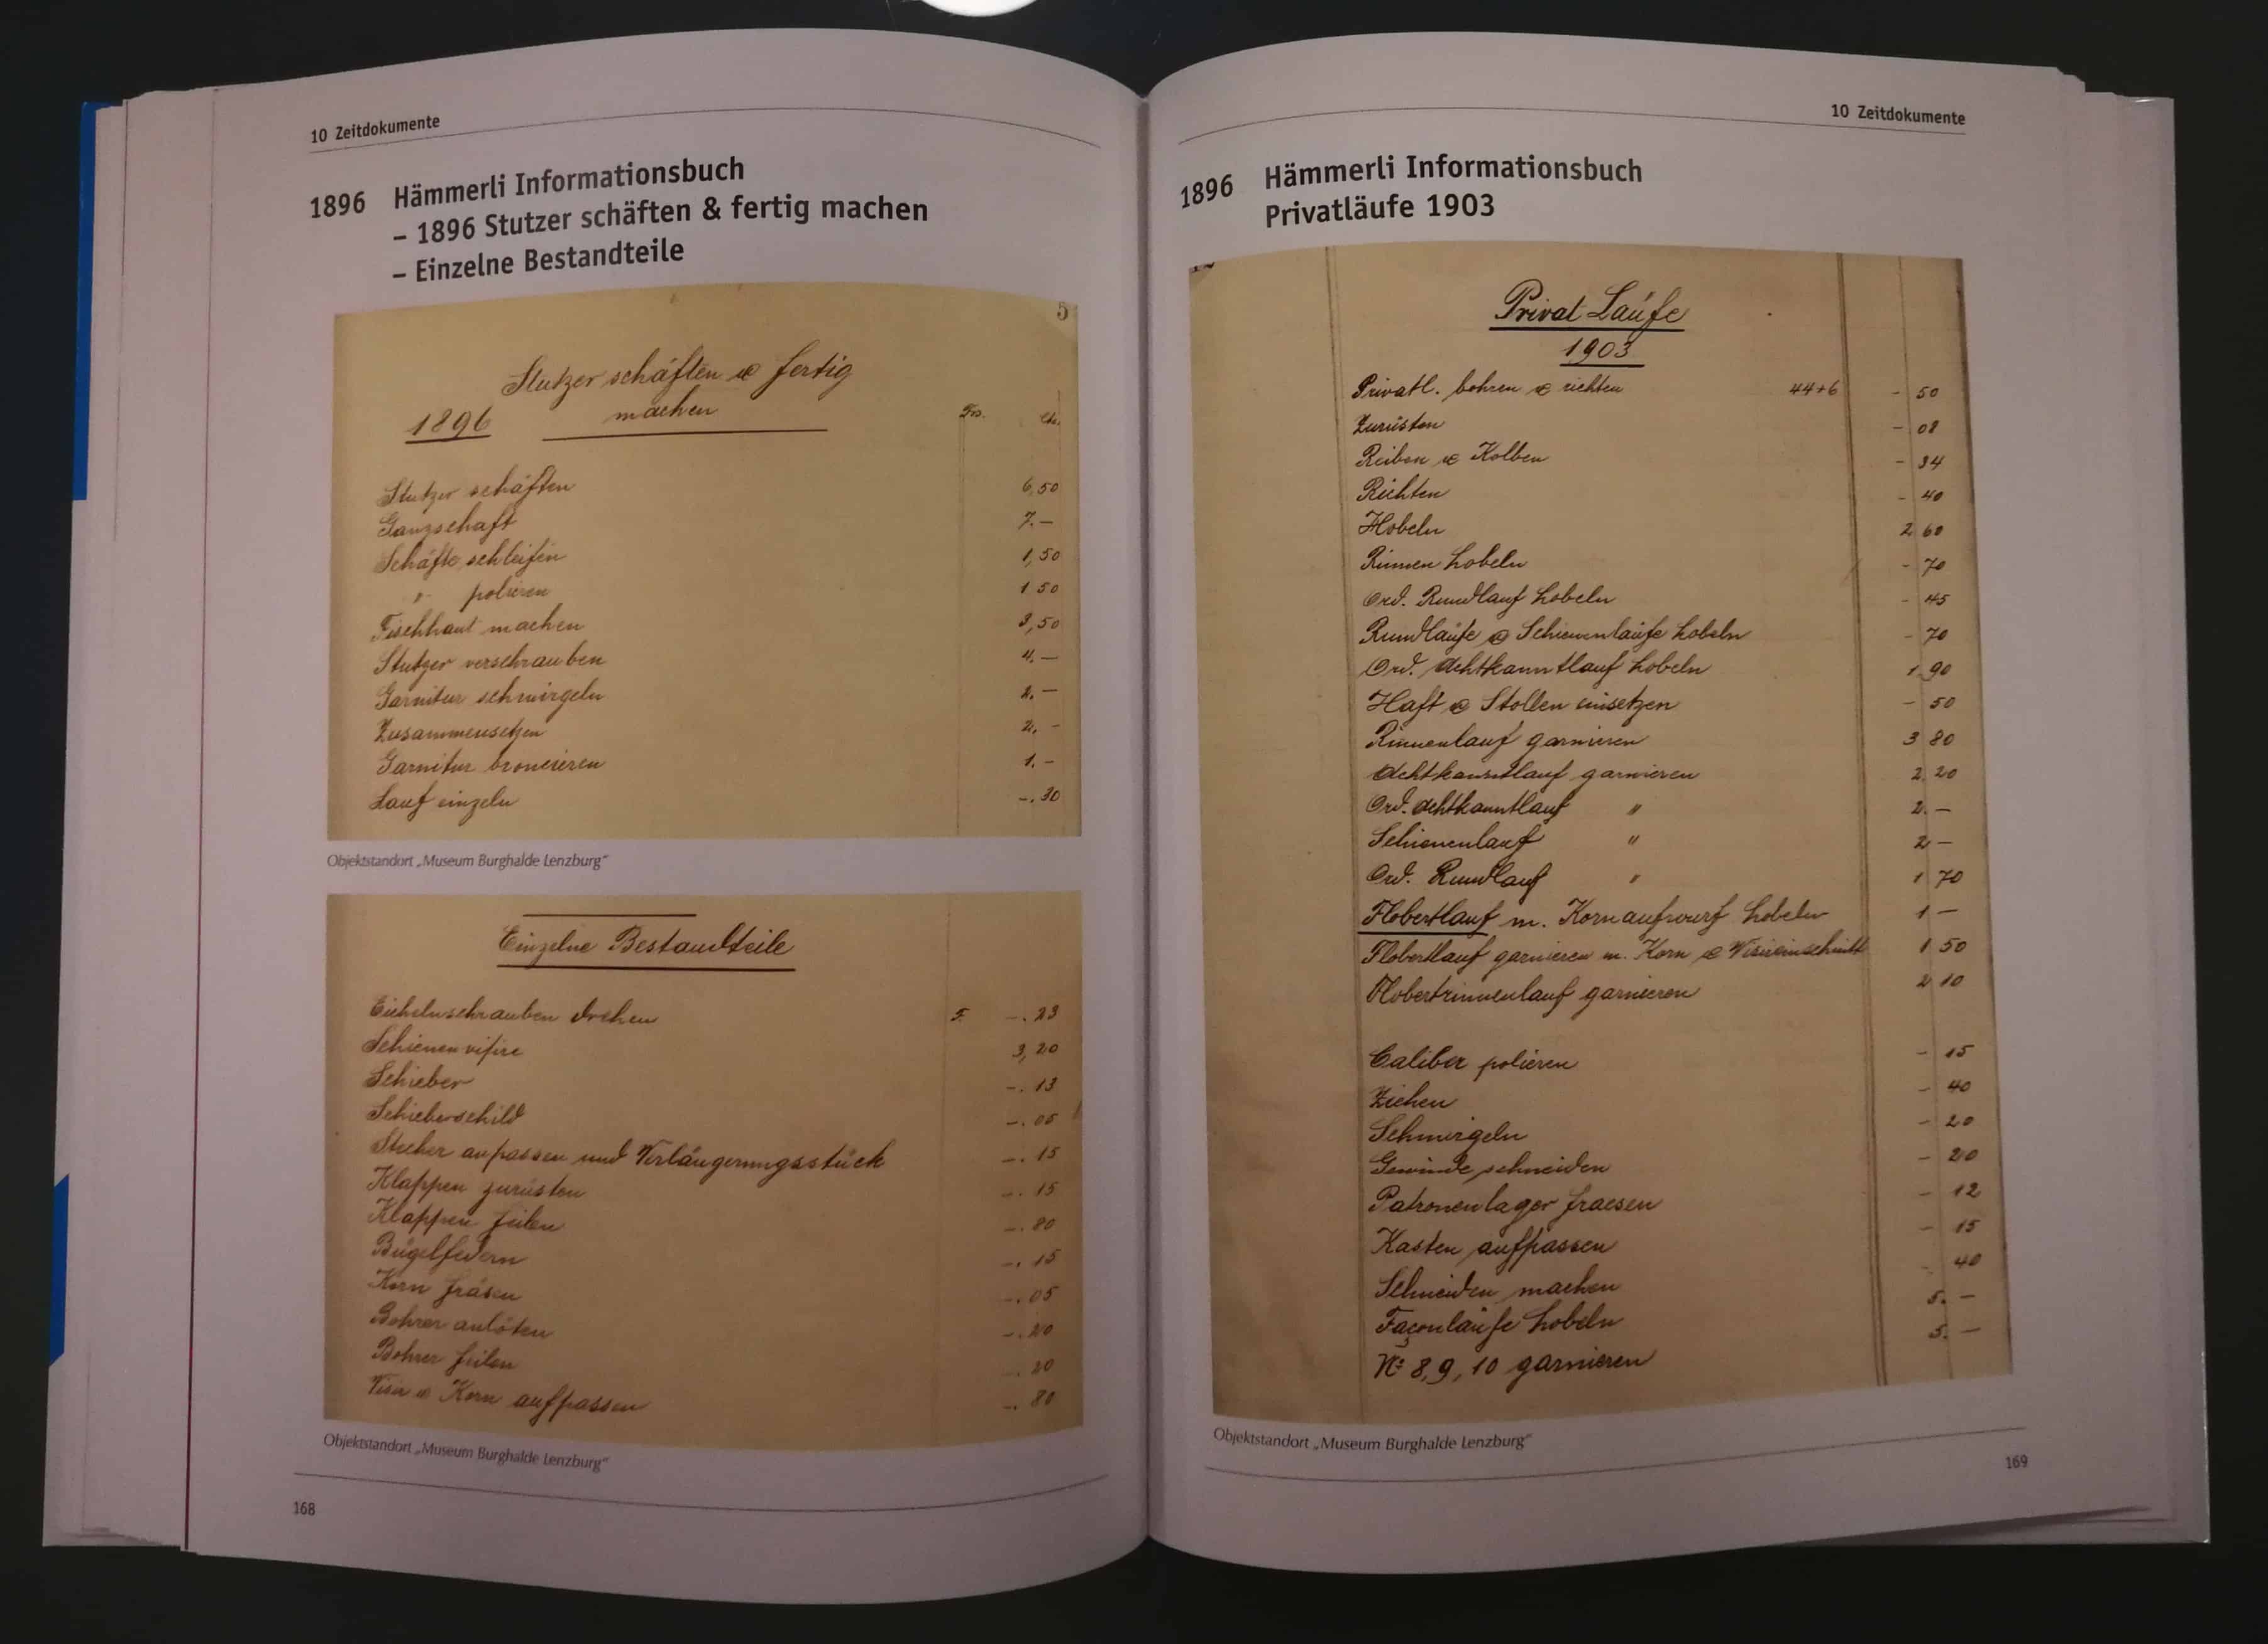 10 Zeitdokumente
1896 Hämmerli Informationsbuch
– 1896 Stutzer schäften & fertig machen
– Einzelne Bestandteile
5
Stutzer schäften & fertig
1896 machen Frs. Cts.
Stutzer schäften 6,50
Ganzschaft 7.–
Schäfte schleifen 1,50
" polieren 1 50
Fischhaut machen 3,50
Stutzer verschrauben 4.–
Garnitur schmirgeln 2.–
Zusammensetzen 2.–
Garnitur broncieren 1.–
Lauf einzeln –.30
Objektstandort „Museum Burghalde Lenzburg“
Einzelne Bestandteile
Eichelnschrauben drehen F. –.23
Schienenvisire 3,20
Schieber –.13
Schieberschild –.05
Stecher anpassen und Verlängerungsstück –.15
Klappen zurüsten –.15
Klappen feilen –.80
Bügelfedern –.15
Korn fräsen –.05
Bohrer anlöten –.20
Bohrer feilen 20
Visir & Korn aufpassen –.80
Objektstandort „Museum Burghalde Lenzburg“
168
10 Zeitdokumente
1896 Hämmerli Informationsbuch
Privatläufe 1903
Privat Läufe
1903
Privatl. bohren & richten 44+6 – 50
Zurüsten – 08
Reiben & Kolben – 34
Richten – 40
Hobeln 2 60
Rinnen hobeln – 70
Ord. Rundlauf hobeln – 45
Rundläufe & Schienenläufe hobeln – 70
Ord. Achtkanntlauf hobeln 1.90
Haft & Stollen einsetzen – 50
Rinnenlauf garnieren 3 80
Achtkanntlauf garnieren 2.20
Ord. Achtkanntlauf " 2.–
Schienenlauf " 2 –
Ord. Rundlauf " 1 70
Flobertlauf m. Kornaufwurf hobeln 1 –
Flobertlauf garnieren m. Korn & Visireinschnitt 1 50
Flobertrinnenlauf garnieren 2 10
Caliber polieren – 15
Ziehen – 40
Schmirgeln – 20
Gewinde schneiden – 20
Patronenlager fraesen – 12
Kasten aufpassen – 15
Schneiden machen – 40
Façonläufe hobeln 5.–
No 8, 9, 10 garnieren 5.–
Objektstandort „Museum Burghalde Lenzburg“
169